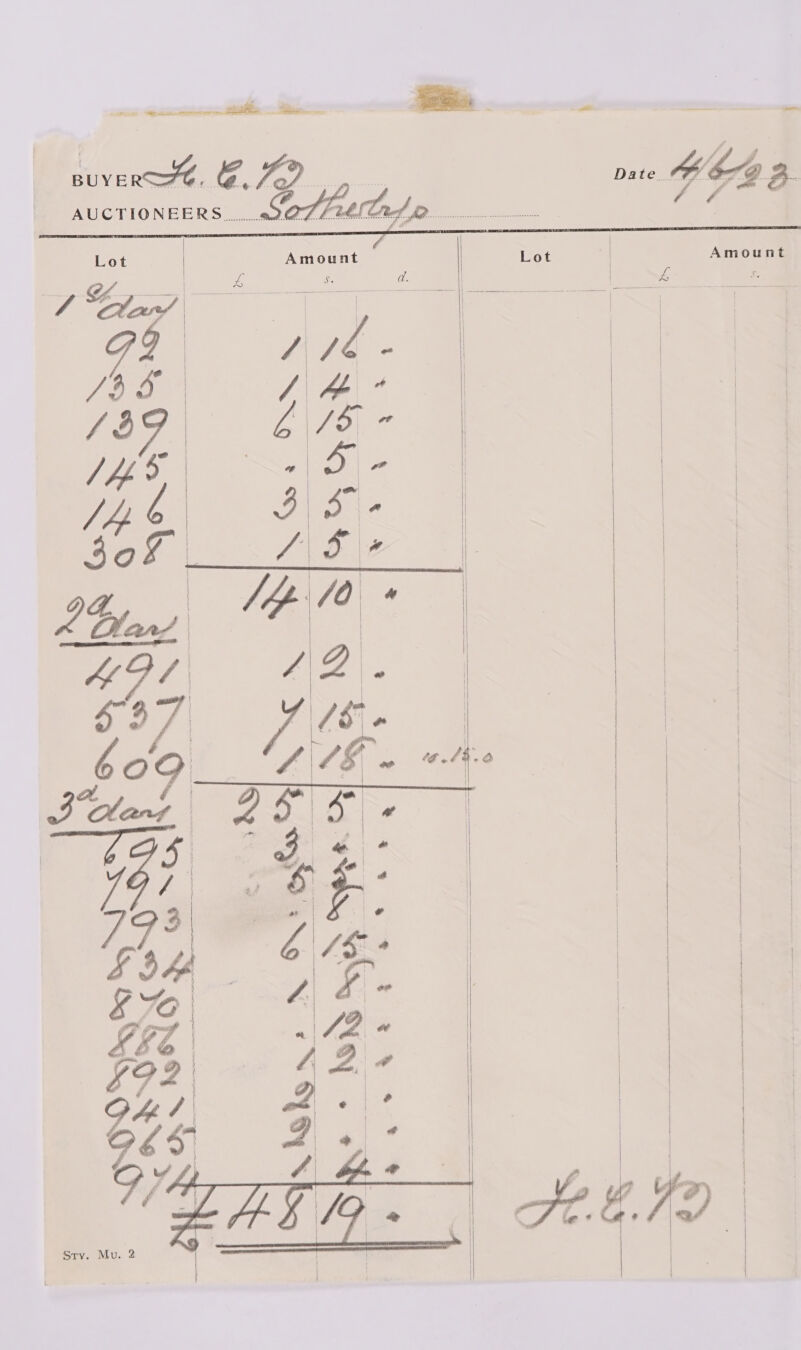 BUYER H. C. D Date 4/6/23
AUCTIONEERS Sothebys
Lot Amount Lot Amount
£ s. d. £ s.
1st Day
99 1 16 -
135 1 4 -
139 6 15 -
145 - 5 -
146 3 5 -
308 1 5 -
14 10 -
2d Day
491 1 2 -
537 7 15 -
609 1 18 - 10.15.0
3d Day 25 5 -
695 3 - -
791 5 5 -
793 - 8 -
834 6 15 -
870 1 8 -
886 - 12 -
892 1 2 -
941 2 - -
965 2 - -
974 1 4 -
£ 48 19 - H. C. D
Sty. Mu. 2